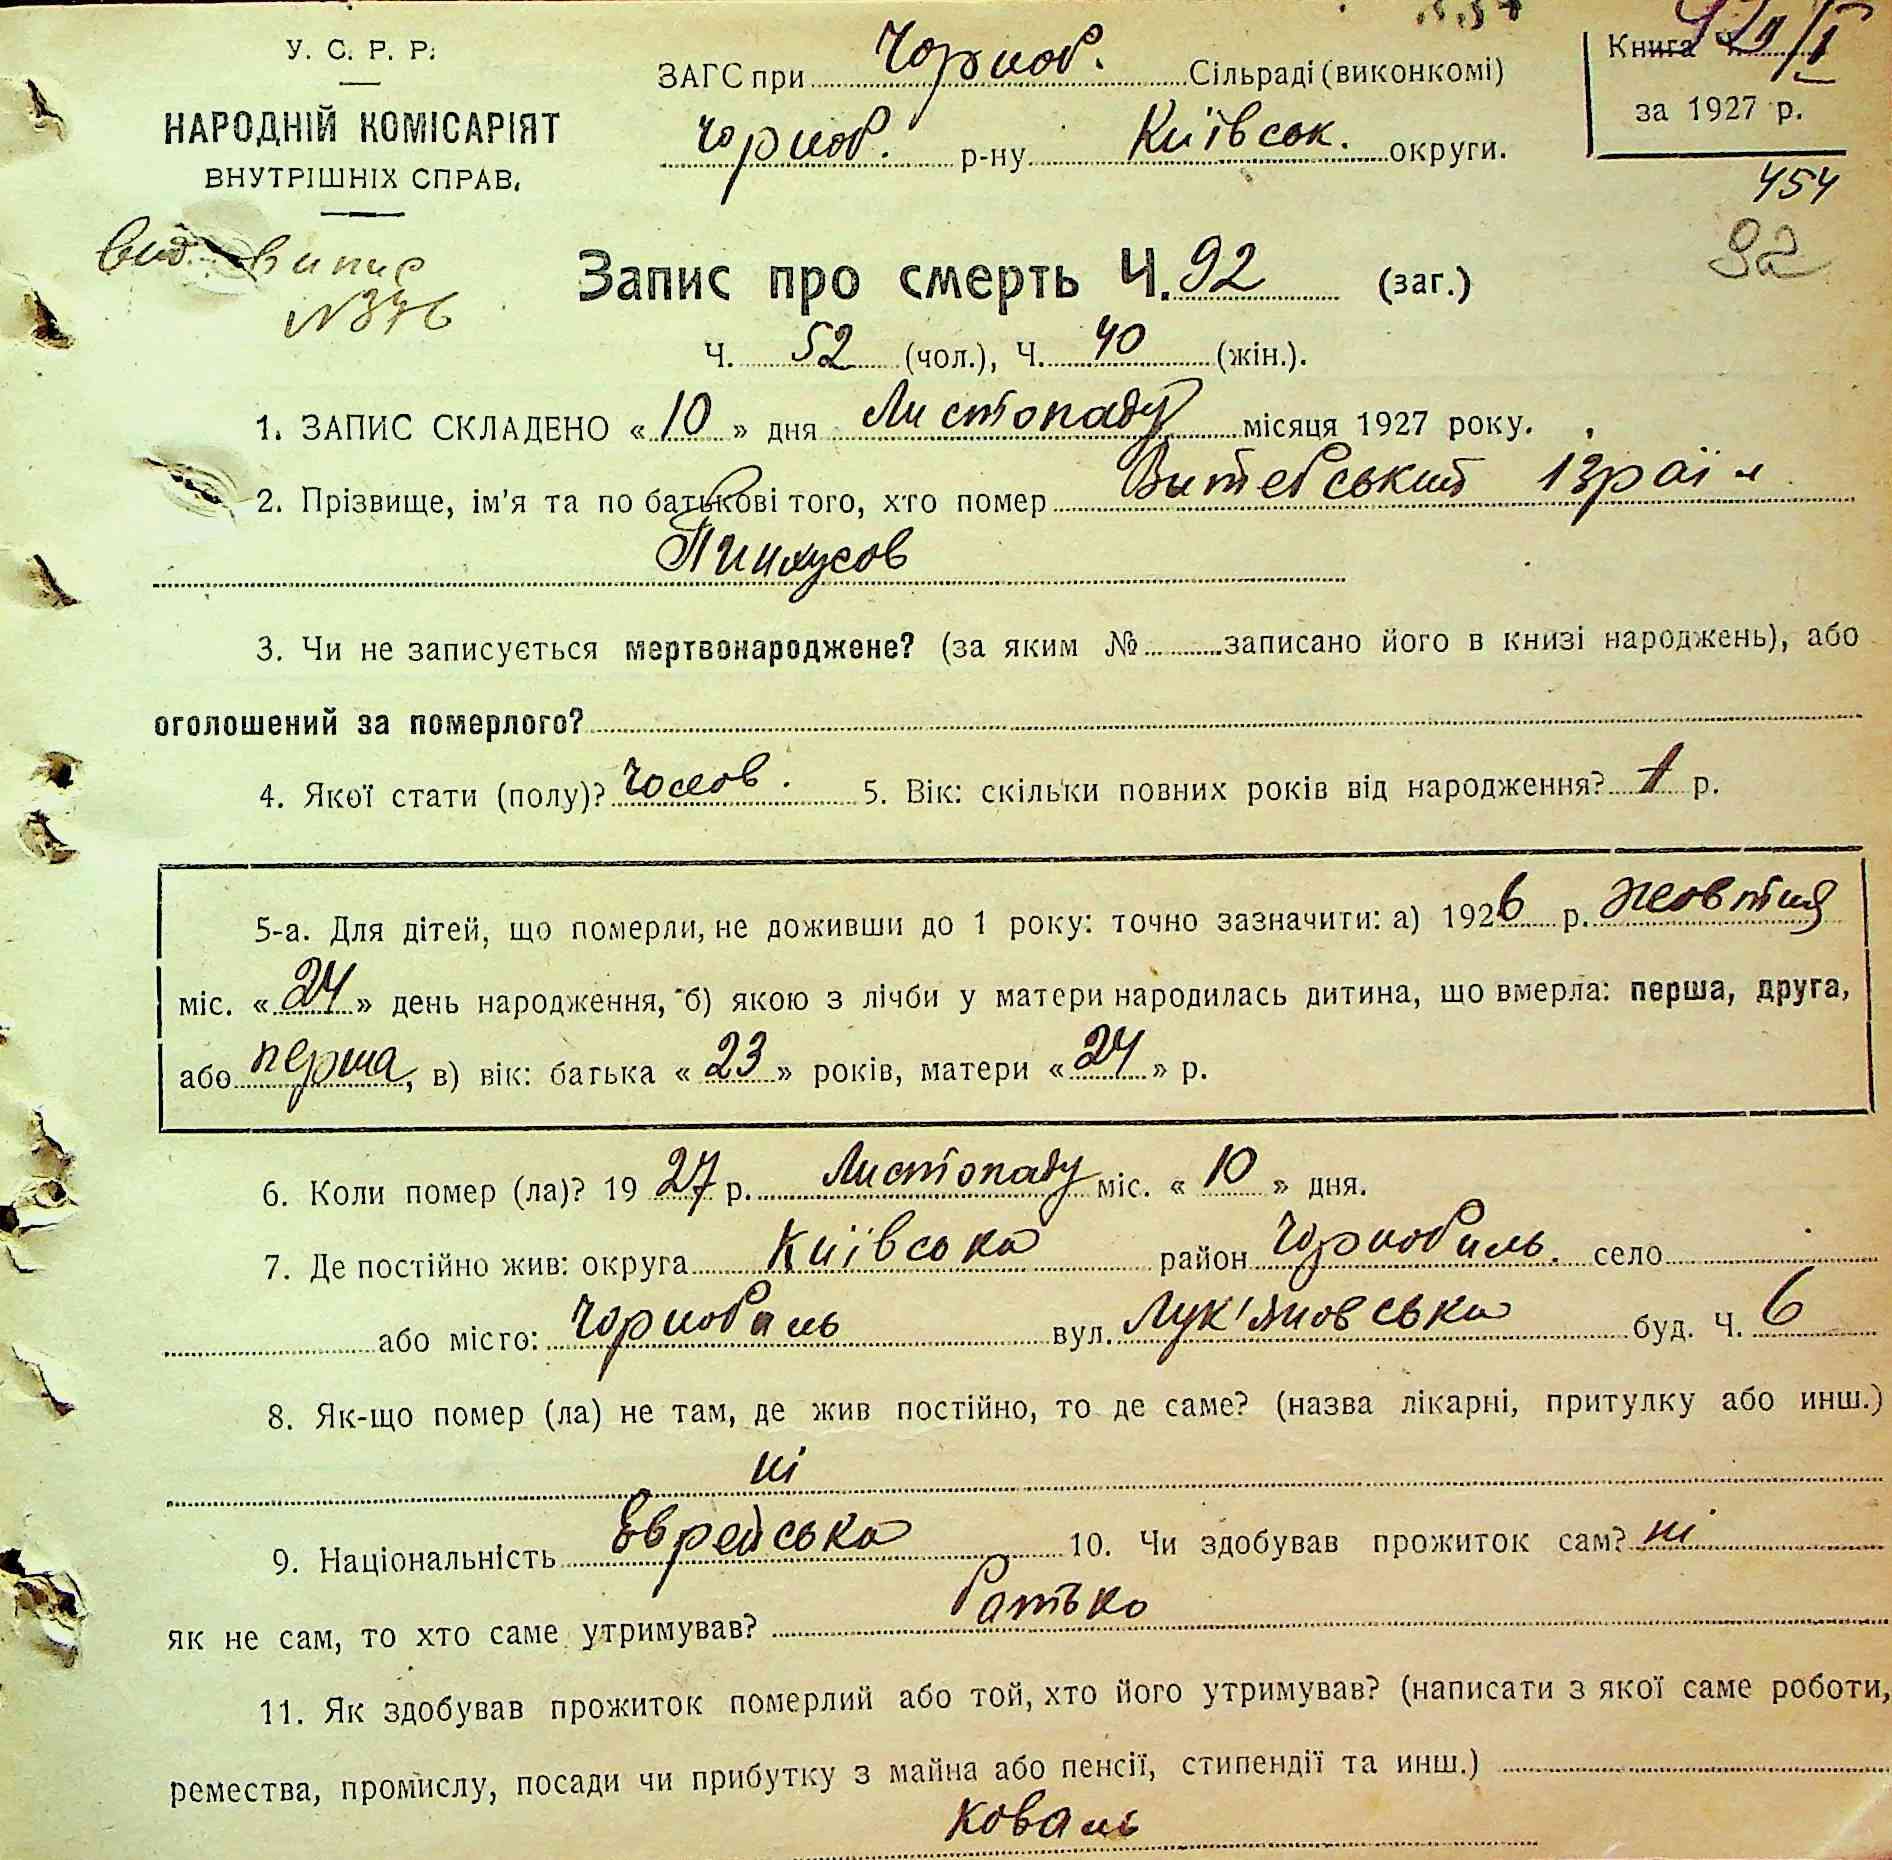 У. С. Р. Р.
НАРОДНІЙ КОМІСАРІЯТ
ВНУТРІШНІХ СПРАВ.
ЗАГС при Чорноб. Сільраді (виконкомі)
Чорноб. р-ну Київськ. округи.
Книга
за 1927 р.
454
92
вид. випис
№ 376
Запис про смерть Ч. 92 (заг.)
Ч. 52 (чол.), Ч. 40 (жін.).
1. ЗАПИС СКЛАДЕНО «10» дня Листопаду місяця 1927 року.
2. Прізвище, ім'я та по батькові того, хто помер Витебський Ізраїл
Пинхусов
3. Чи не записується мертвонароджене? (за яким № записано його в книзі народжень), або
оголошений за померлого?
4. Якої стати (полу)? Чолов. 5. Вік: скільки повних років від народження? 1 р.
5-а. Для дітей, що померли, не доживши до 1 року: точно зазначити: а) 1926 р. жовтня
міс. «24» день народження, б) якою з лічби у матери народилась дитина, що вмерла: перша, друга,
або перша, в) вік: батька «23» років, матери «24» р.
6. Коли помер (ла)? 1927 р. Листопаду міс. «10» дня.
7. Де постійно жив: округа Київська район Чорнобиль. село
або місто: Чорнобиль вул. Лук'яновська буд. Ч. 6
8. Як-що помер (ла) не там, де жив постійно, то де саме? (назва лікарні, притулку або инш.)
ні
9. Національність Еврейська 10. Чи здобував прожиток сам? ні
як не сам, то хто саме утримував? Батько
11. Як здобував прожиток померлий або той, хто його утримував? (написати з якої саме роботи,
ремества, промислу, посади чи прибутку з майна або пенсії, стипендії та инш.)
Коваль